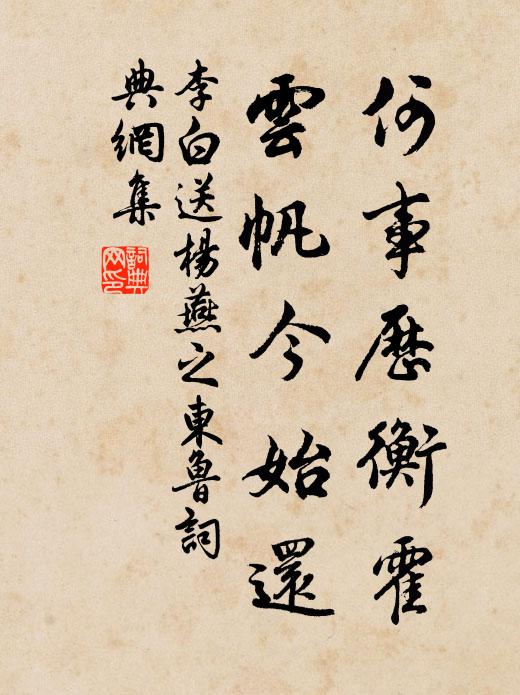 何事歷衡霍
雲帆今始還
李白送楊燕之東魯詞
典網集
詞典網印